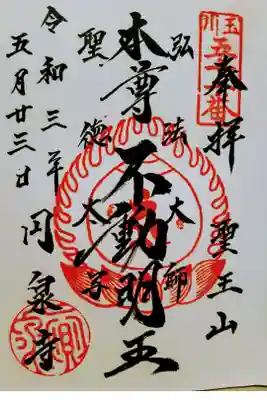 玉川
奉拝 聖王山
弘法大師
本尊 不動明王
聖徳太子
円泉寺
令和三年
五月廿三日